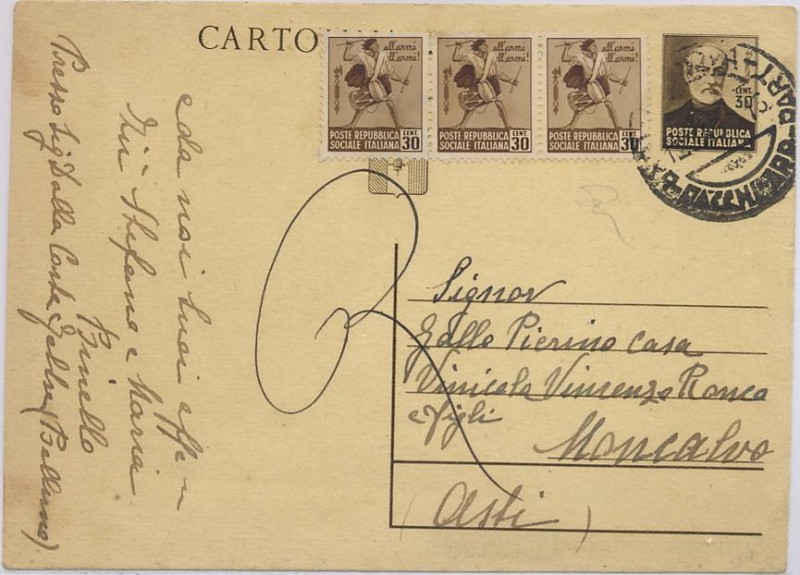 CARTO
all'armi all'armi!
all'armi all'armi!
all'armi all'armi!
POSTE REPUBBLICA SOCIALE ITALIANA CENT. 30
POSTE REPUBBLICA SOCIALE ITALIANA CENT. 30
POSTE REPUBBLICA SOCIALE ITALIANA CENT. 30
CENT. 30
POSTE REPUBBLICA
SOCIALE ITALIANA
Signor
Gallo Pierino Casa
Vinicola Vincenzo Ronco
e figli
Moncalvo
(Asti)
e da noi tuoi
Zii Stefano e Maria
Binello
Presso Sig Dalla Costa (Belluno)